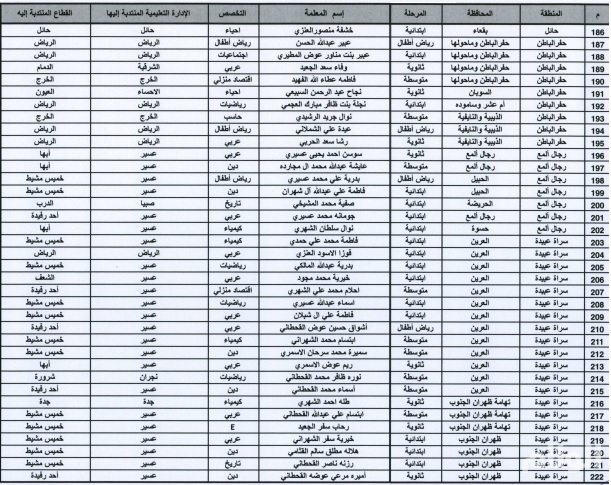 م المنطقة المحافظة المرحلة إسم المعلمة التخصص الإدارة التعليمية المنتدبة إليها القطاع المنتدبة إليه
186 حائل بقعاء ابتدائية خشفة منصور العنزي احياء حائل حائل
187 حفرالباطن حفرالباطن وماحولها رياض أطفال عبير عبد الله الحسن رياض أطفال الرياض الرياض
188 حفرالباطن حفرالباطن وماحولها ابتدائية عبير بنت مناور عوض المطيري اجتماعيات الرياض الرياض
189 حفرالباطن حفرالباطن وماحولها ثانوية وفاء سعد الجعيد عربي الشرقية الدمام
190 حفرالباطن حفرالباطن وماحولها متوسطة فاطمه عطاء الله الفهيد اقتصاد منزلي الخرج الخرج
191 حفرالباطن السوبان ثانوية نجاح عبد الرحمن السبيعي احياء الاحساء العيون
192 حفرالباطن أم عشر وساموده ابتدائية نجلة بنت ظافر مبارك العجمي رياضيات الرياض الرياض
193 حفرالباطن الذيبية والنايفية متوسطة نوال جريد الرشيدي حاسب الخرج الخرج
194 حفرالباطن الذيبية والنايفية رياض أطفال عبدة علي الشملاني رياض أطفال الرياض الرياض
195 حفرالباطن الذيبية والنايفية ثانوية رشا سعد الحربي عربي الرياض الرياض
196 رجال ألمع رجال ألمع ثانوية سوسن احمد يحيى عسيري عربي عسير أبها
197 رجال ألمع رجال ألمع متوسطة عايشة عبدالله محمد ال مجارده دين عسير أبها
198 رجال ألمع الحبيل رياض أطفال بدرية علي محمد عسيري رياض أطفال عسير خميس مشيط
199 رجال ألمع الحبيل ابتدائية فاطمة علي عبدالله آل شهران دين عسير خميس مشيط
200 رجال ألمع الحريضة ابتدائية صفية محمد المشيخي تاريخ صبيا الدرب
201 رجال ألمع رجال ألمع ابتدائية جومانه محمد عسيري عربي عسير أحد رفيدة
202 رجال ألمع حسوة ابتدائية نوال سلطان الشهري كيمياء عسير أبها
203 سراة عبيدة العرين ابتدائية فاطمة محمد علي حمدي كيمياء عسير خميس مشيط
204 سراة عبيدة العرين ابتدائية فوزا الاسود العنزي عربي الرياض الرياض
205 سراة عبيدة العرين ابتدائية بدرية عبدالله المالكي رياضيات عسير خميس مشيط
206 سراة عبيدة العرين ابتدائية خيرية محمد مجود عربي عسير الشعف
207 سراة عبيدة العرين متوسطة احلام محمد علي الشهري اقتصاد منزلي عسير أحد رفيدة
208 سراة عبيدة العرين ابتدائية اسماء عبدالله عسيري رياضيات عسير خميس مشيط
209 سراة عبيدة العرين ابتدائية فاطمة علي ال شبلان عربي عسير خميس مشيط
210 سراة عبيدة العرين رياض أطفال أشواق حسين عوض القحطاني عربي عسير أحد رفيدة
211 سراة عبيدة العرين متوسطة ابتسام محمد الشهراني كيمياء عسير خميس مشيط
212 سراة عبيدة العرين متوسطة سميرة محمد سرحان الاسمري دين عسير خميس مشيط
213 سراة عبيدة العرين ثانوية ريم عوض الاسمري عربي عسير أبها
214 سراة عبيدة العرين متوسطة نوره ظافر محمد القحطاني رياضيات نجران شرورة
215 سراة عبيدة العرين متوسطة أسماء محمد القحطاني دين عسير أحد رفيدة
216 سراة عبيدة تهامة ظهران الجنوب ثانوية طله احمد الشهري كيمياء جدة جدة
217 سراة عبيدة تهامة ظهران الجنوب متوسطة ابتسام علي عبدالله القحطاني عربي عسير خميس مشيط
218 سراة عبيدة تهامة ظهران الجنوب ثانوية رحاب سفر الجعيد E عسير خميس مشيط
219 سراة عبيدة ظهران الجنوب ابتدائية خيرية سفر الشهراني عربي عسير خميس مشيط
220 سراة عبيدة ظهران الجنوب ابتدائية هلاله مطلق سالم القثامي دين عسير خميس مشيط
221 سراة عبيدة ظهران الجنوب ابتدائية رزنه ناصر القحطاني تاريخ عسير خميس مشيط
222 سراة عبيدة ظهران الجنوب ثانوية أميره مرعي عوضه القحطاني دين عسير أحد رفيدة